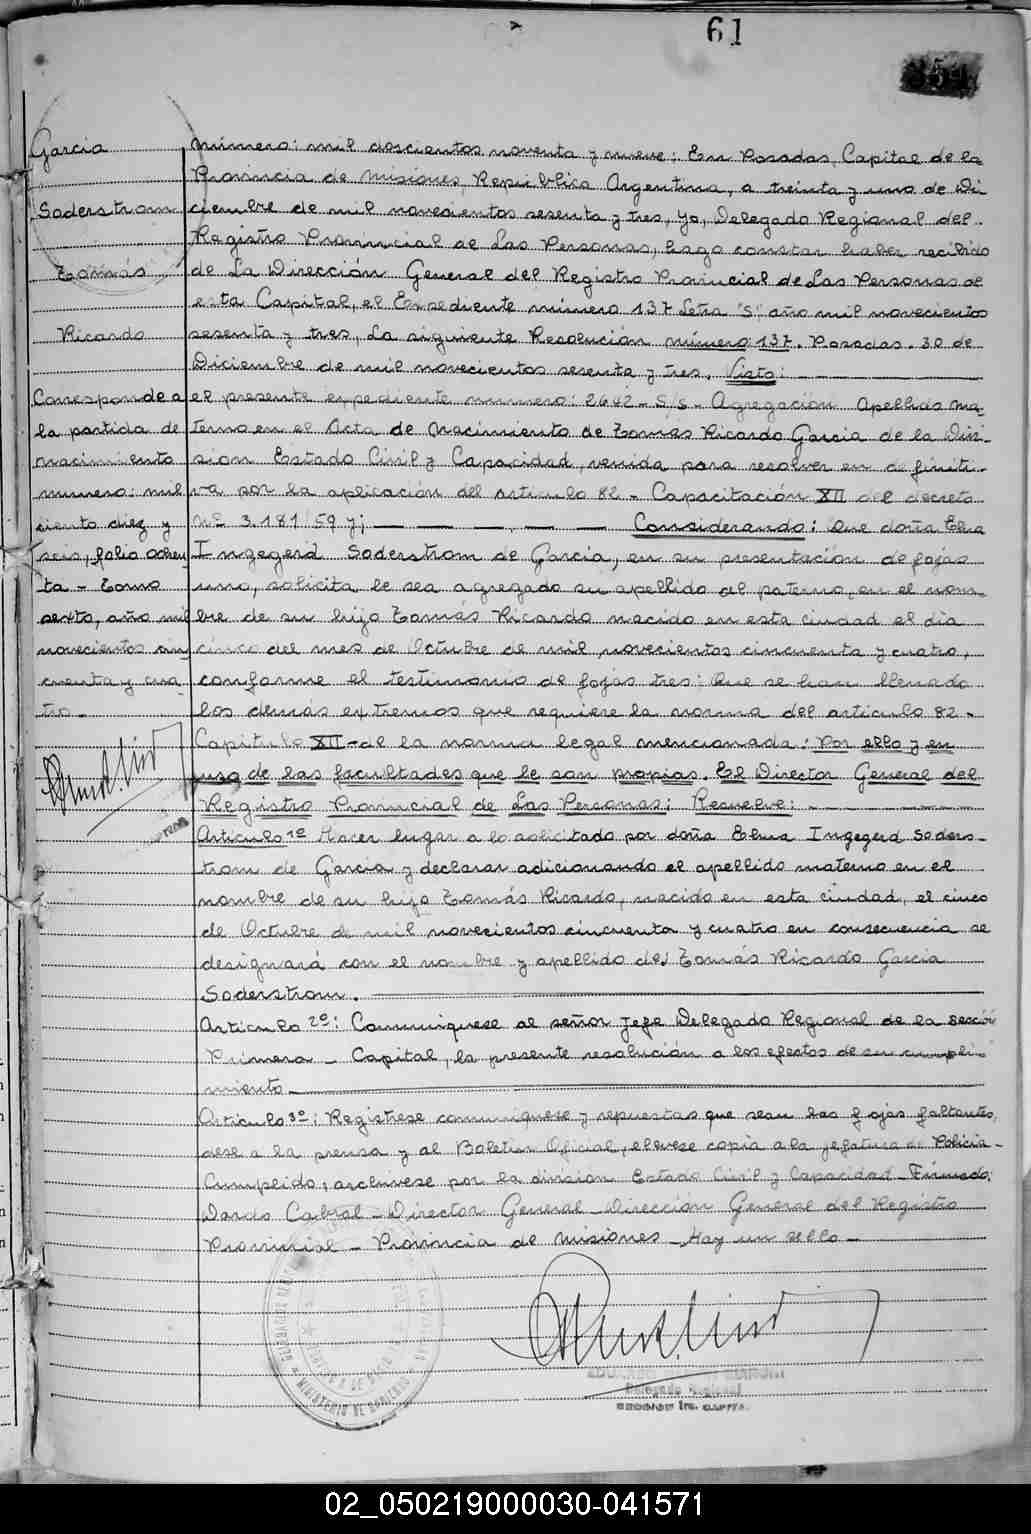 61
354
Garcia
Soderstrom
Tomás
Ricardo
Corresponde a
la partida de
nacimiento
número: mil
ciento diez y
seis, folio ochen-
ta - Tomo
sexto, año mil
novecientos cin
cuenta y cua-
tro.-
número: mil doscientos noventa y nueve: En Posadas, Capital de la
Provincia de Misiones, República Argentina, a treinta y uno de Di
ciembre de mil novecientos sesenta y tres, Yo, Delegado Regional del
Registro Provincial de Las Personas, hago constar haber recibido
de La Dirección General del Registro Provincial de Las Personas de
esta Capital, el Expediente número 137 Letra "S" año mil novecientos
sesenta y tres, La siguiente Resolución número: 137. Posadas. 30 de
Diciembre de mil novecientos sesenta y tres. Visto:
el presente expediente número: 2642-S/S- Agregación Apellido Ma-
terno en el Acta de Nacimiento de Tomás Ricardo Garcia de la Divi-
sion Estado Civil y Capacidad, venida para resolver en definiti-
va por la aplicación del articulo 82 - Capacitación XII del decreto
Nº 3.181/59 y; Considerando: Que doña Elna
Ingegerd Soderstrom de Garcia, en su presentación de fojas
uno, solicita le sea agregado su apellido al paterno, en el nom-
bre de su hijo Tomás Ricardo nacido en esta ciudad el día
cinco del mes de Octubre de mil novecientos cincuenta y cuatro,
conforme el testimonio de fojas tres: Que se han llenado
los demás extremos que requiere la norma del articulo 82-
Capitulo XII - de la norma legal mencionada: Por ello y en
uso de las facultades que le son propias. El Director General del
Registro Provincial de Las Personas; Resuelve:
Articulo 1º Hacer lugar a lo solicitado por doña Elna Ingegerd Soders-
trom de Garcia y declarar adicionando el apellido materno en el
nombre de su hijo Tomás Ricardo, nacido en esta ciudad, el cinco
de Octubre de mil novecientos cincuenta y cuatro en consecuencia se
designará con el nombre y apellido de Tomás Ricardo Garcia
Soderstrom.
Articulo 2º: Comuniquese al señor Jefe Delegado Regional de la Sección
Primera - Capital, la presente resolución a los efectos de su cumpli-
miento
Articulo 3º: Registrese comuniquese y repuestas que sean las fojas faltantes,
dese a la prensa y al Boletin Oficial, elevese copia a la jefatura de Policia-
Cumplido, archivese por la división Estado Civil y Capacidad - Firmado:
Dardo Cabral - Director General - Dirección General del Registro
Provincial - Provincia de Misiones - Hay un sello -
MINISTERIO DE GOBIERNO
Delegado Regional
02_050219000030-041571